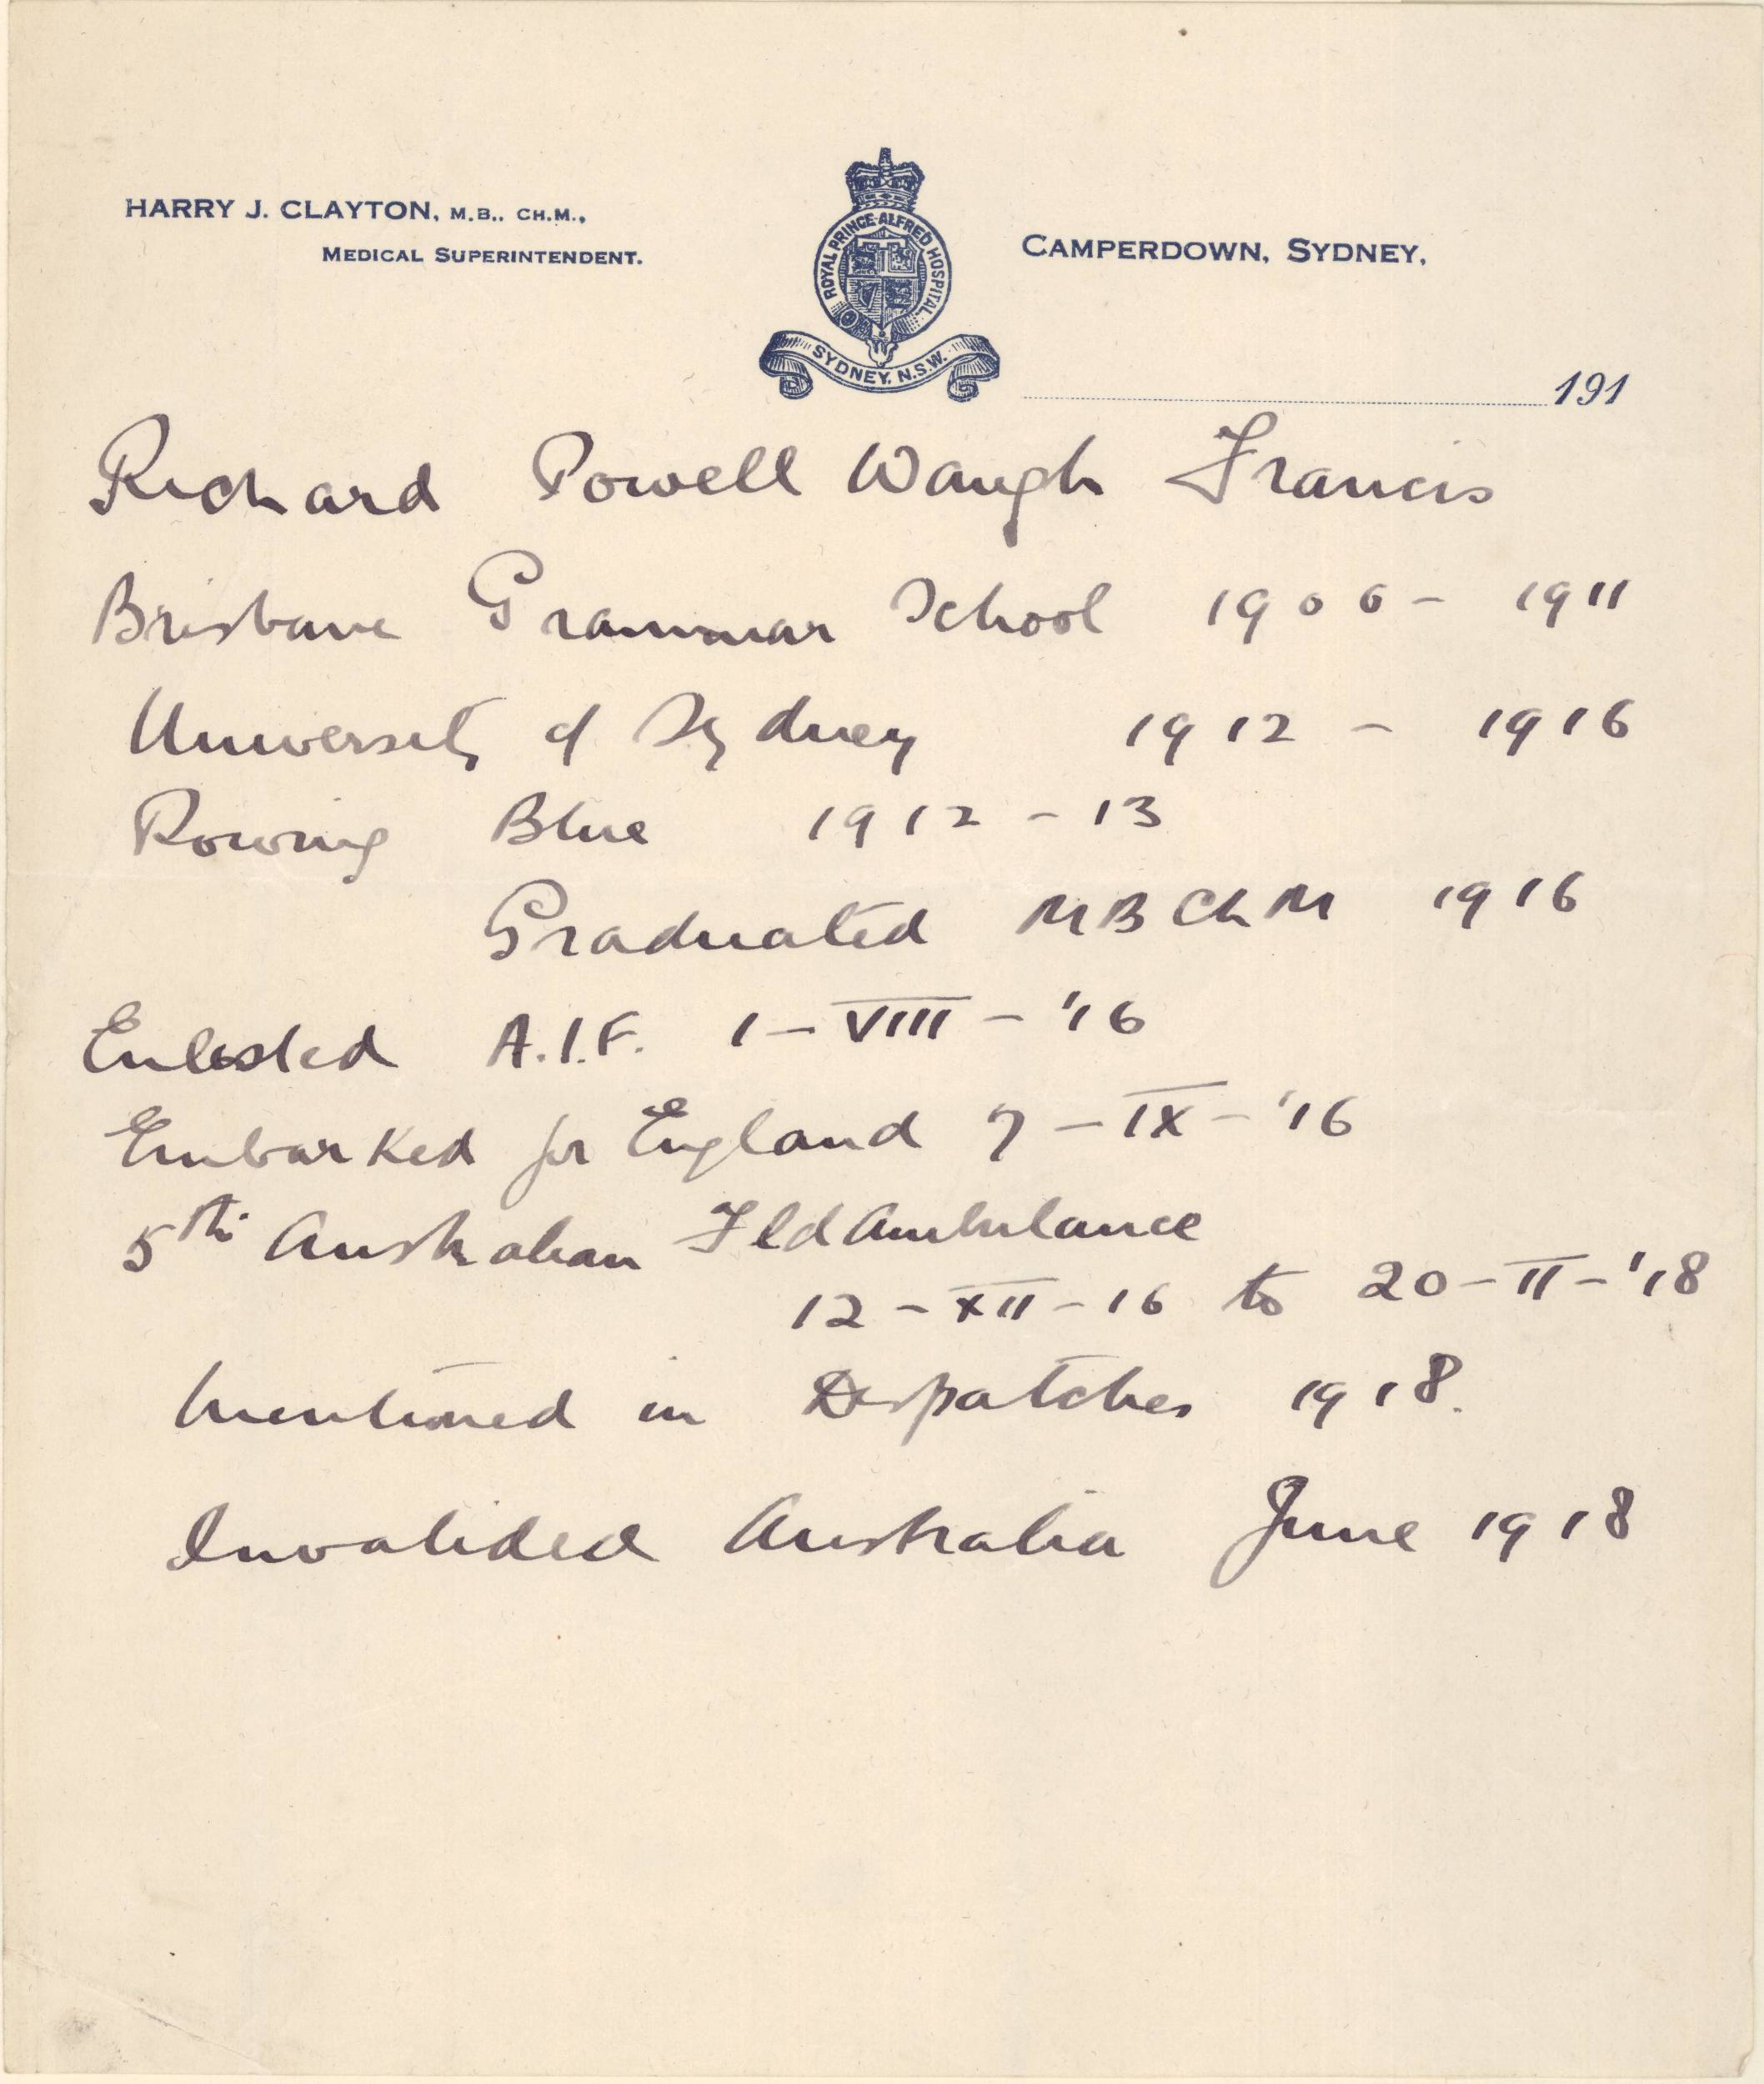 HARRY J. CLAYTON, M.B., CH.M.,
MEDICAL SUPERINTENDENT.
ROYAL PRINCE ALFRED HOSPITAL
SYDNEY. N.S.W.
CAMPERDOWN, SYDNEY,
191
Richard Powell Waugh Francis
Brisbane Grammar School 1906 - 1911
University of Sydney 1912 - 1916
Rowing Blue 1912 - 13
Graduated MB ChM 1916
Enlisted A.I.F. 1 - VIII - '16
Embarked for England 7 - IX - '16
5th Australian Fld Ambulance
12 - XII - 16 to 20 - II - '18
Mentioned in Despatches 1918.
Invalided Australia June 1918